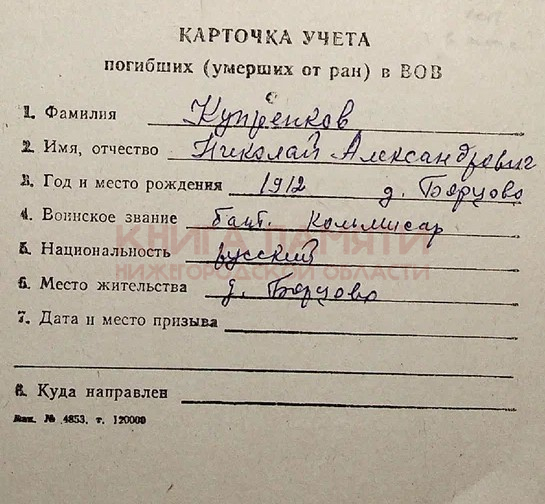 КАРТОЧКА УЧЕТА
погибших (умерших от ран) в ВОВ
1. Фамилия Купренков
2. Имя, отчество Николай Александрович
3. Год и место рождения 1912 д. Борцово
4. Воинское звание бат. комиссар
КНИГА ПАМЯТИ
5. Национальность русский
НИЖЕГОРОДСКОЙ ОБЛАСТИ
6. Место жительства д. Борцово
7. Дата и место призыва
8. Куда направлен
Зак. № 4853, т. 120000